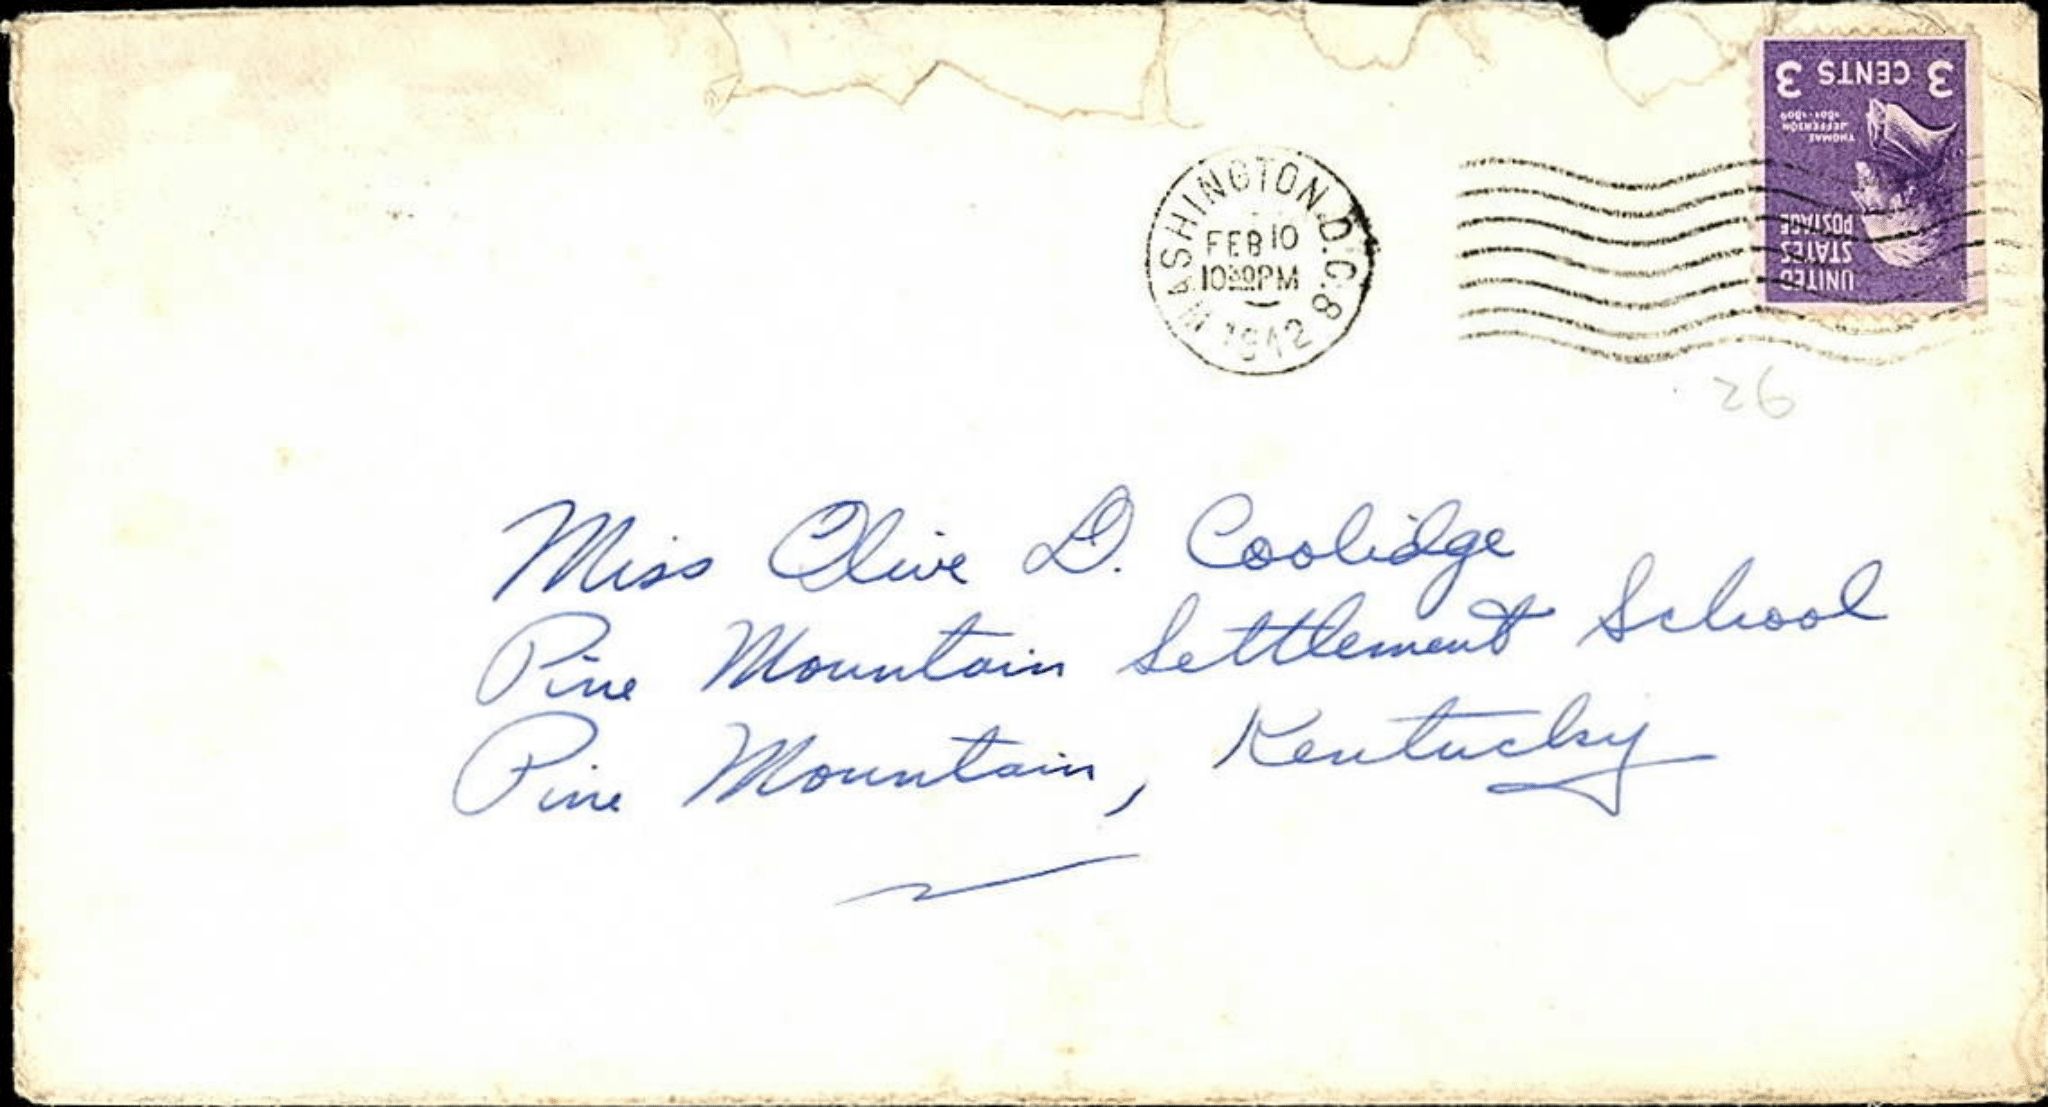 3 CENTS 3
THOMAS
JEFFERSON
1801-1809
UNITED
STATES
POSTAGE
WASHINGTON, D.C. 8
FEB 10
10 30 PM
1942
26
Miss Olive D. Coolidge
Pine Mountain Settlement School
Pine Mountain, Kentucky